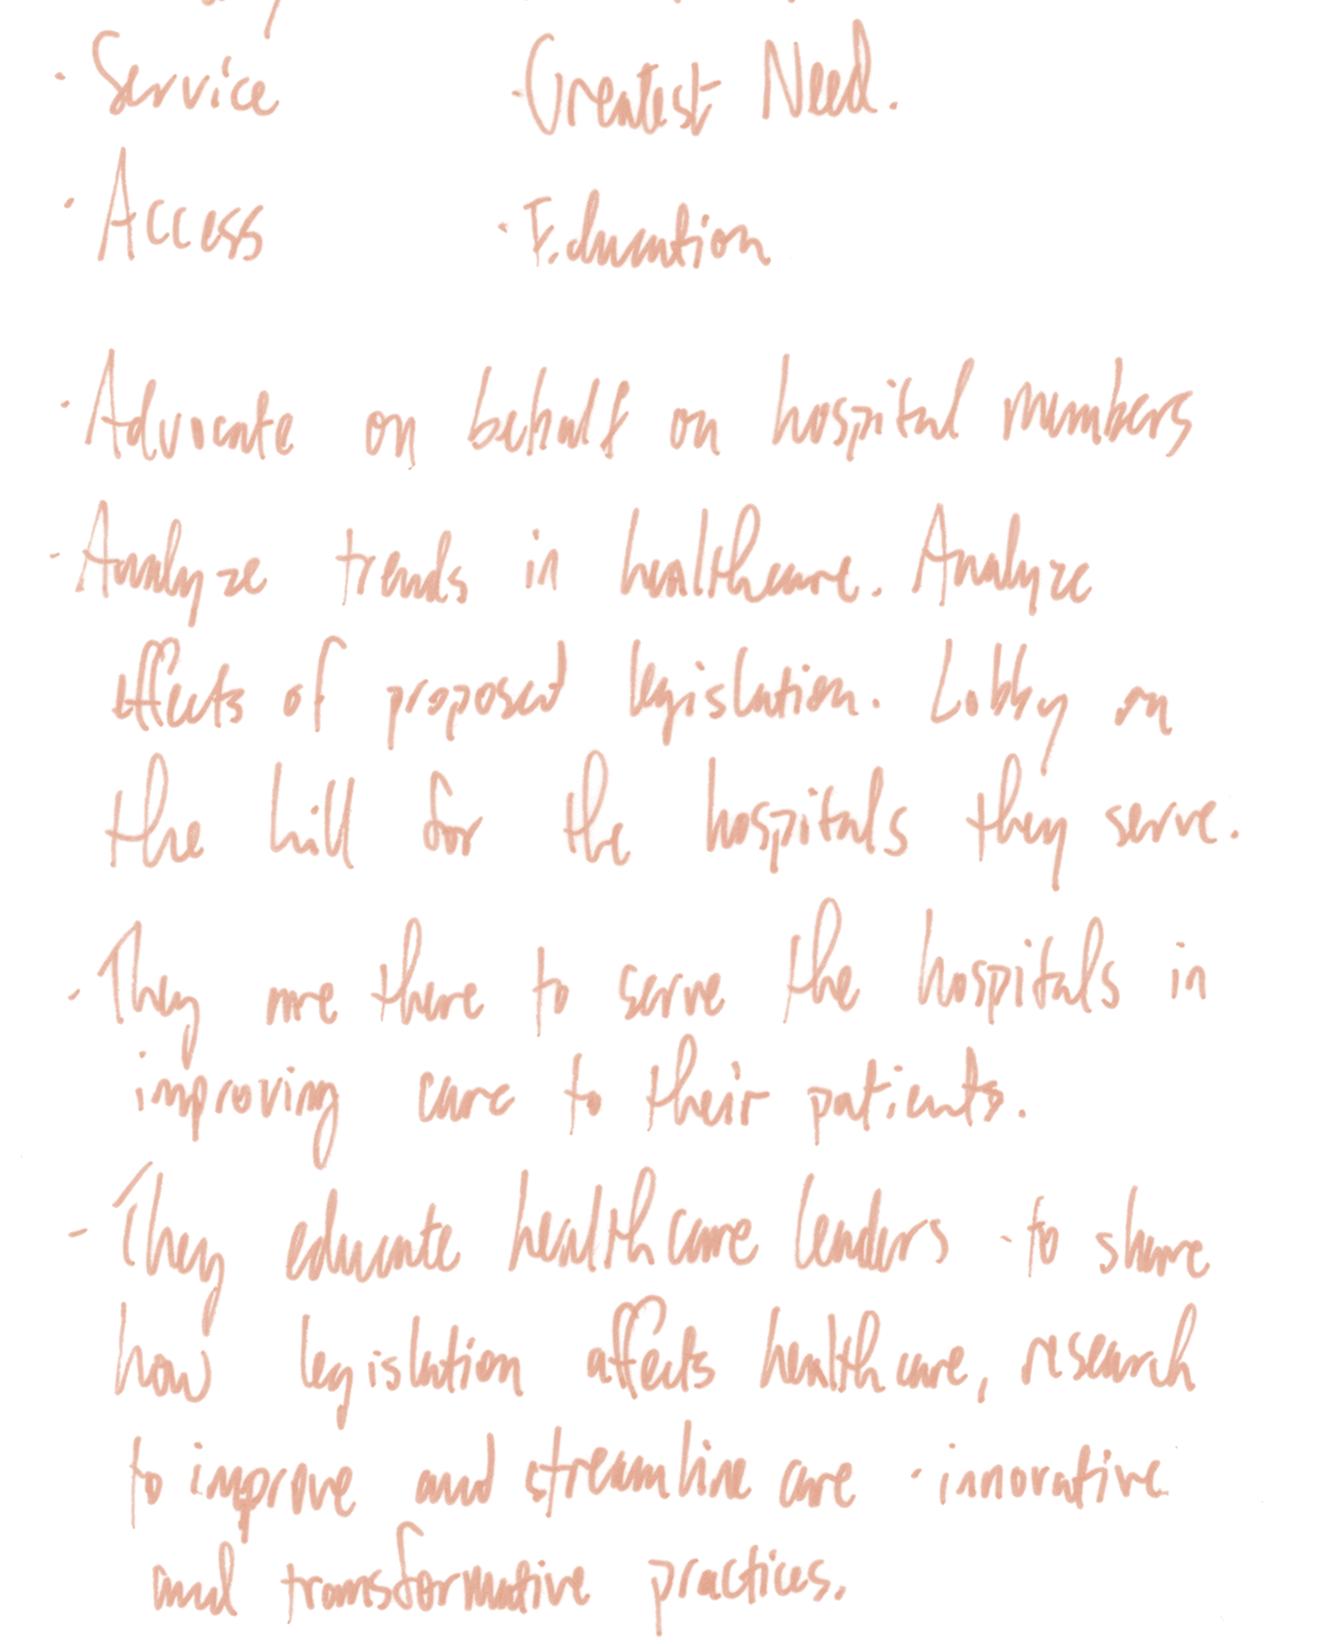 · Service · Greatest Need.
· Access · Education
· Advocate on behalf on hospital members
- Analyze trends in healthcare. Analyze
effects of proposed legislation. Lobby on
the hill for the hospitals they serve.
- They are there to serve the hospitals in
improving care to their patients.
- They educate healthcare leaders - to share
how legislation affects healthcare, research
to improve and streamline care · innovative
and transformative practices.